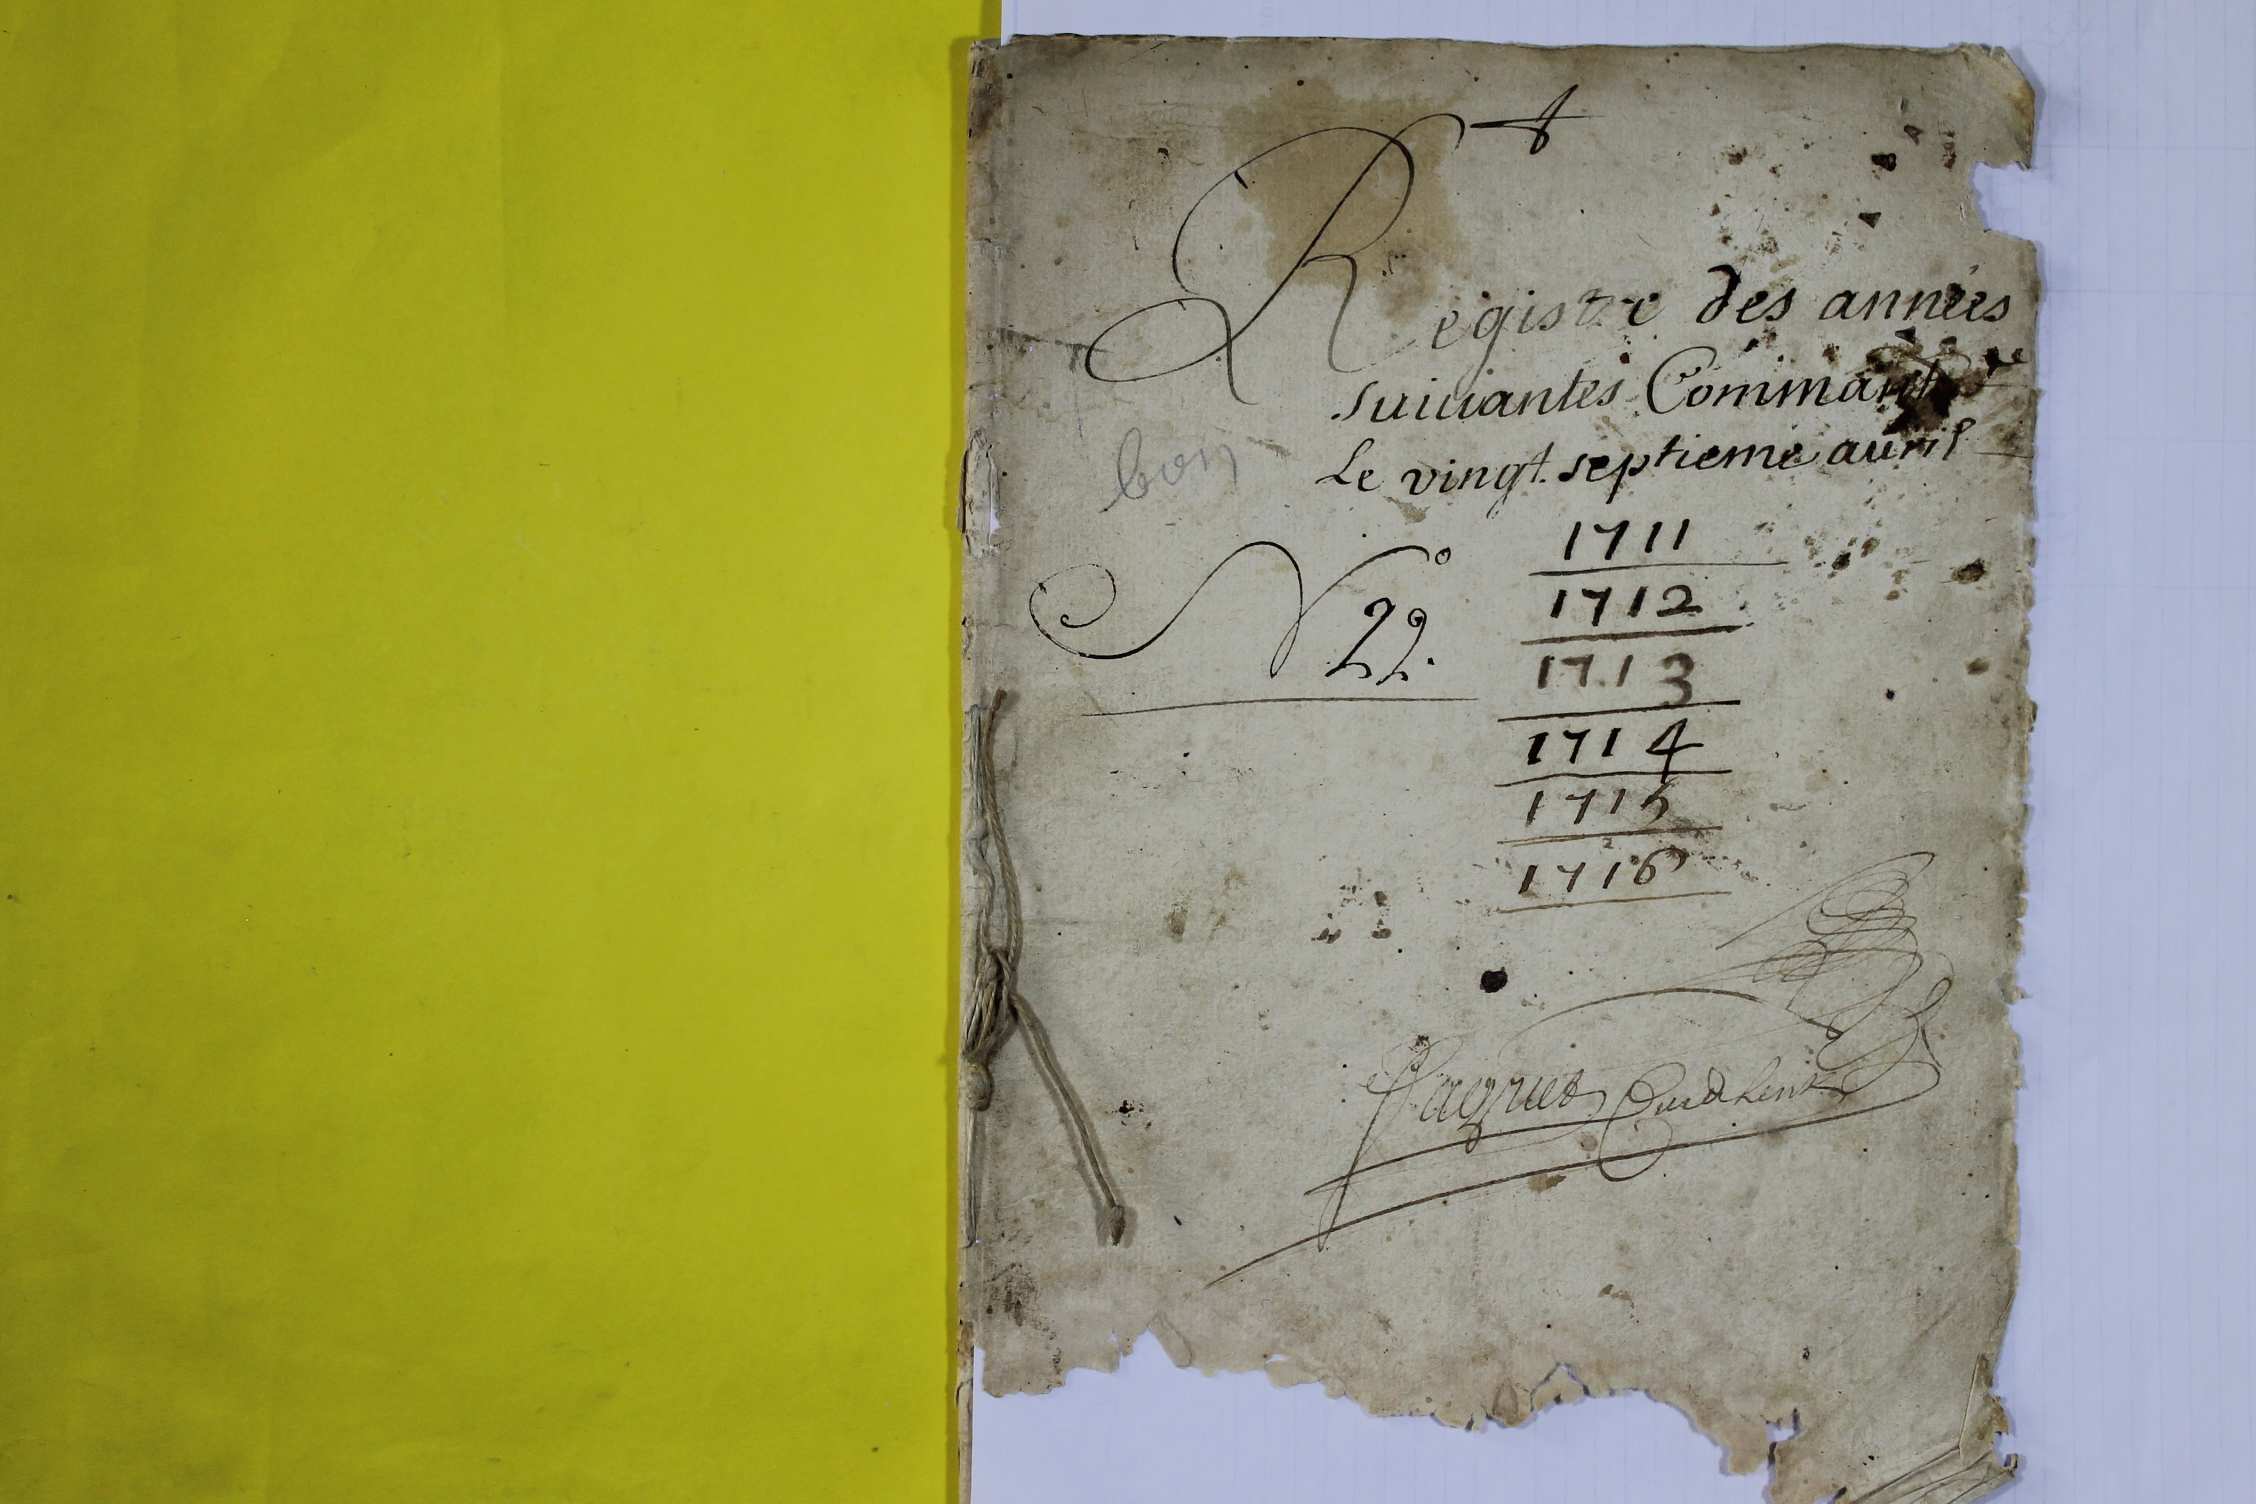 Registre des années
suiuantes Commant
Le vingt septieme auril
bon
N° 22.
1711
1712
1713
1714
1715
1716